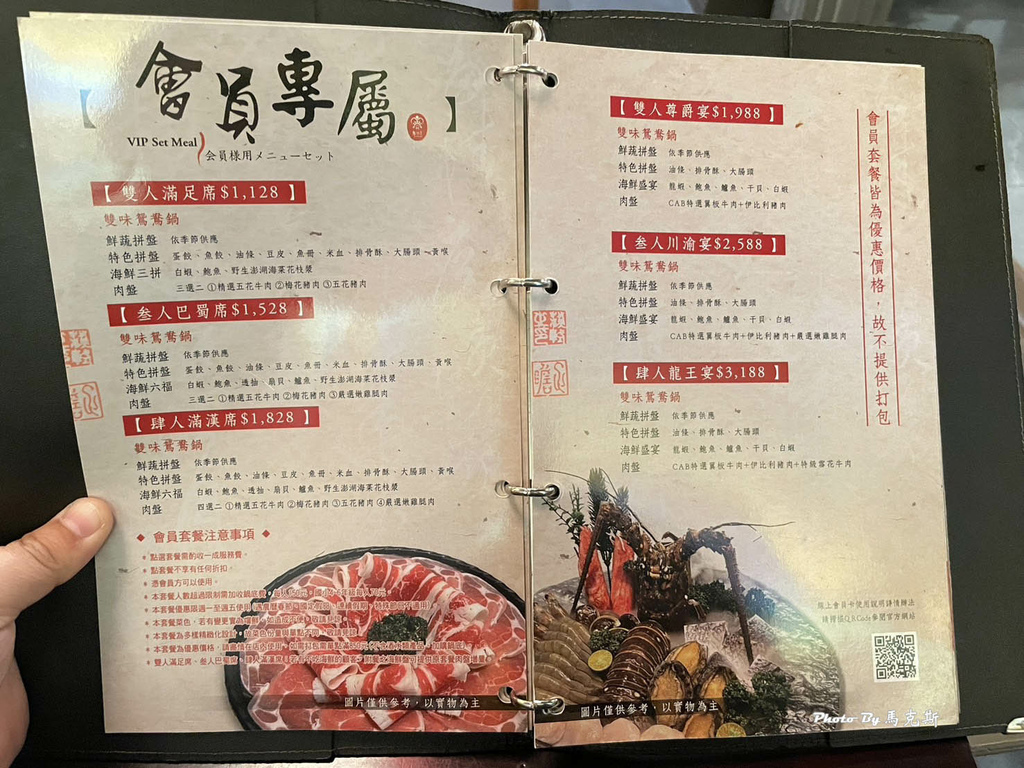 【會員專屬】
VIP Set Meal
会員様用メニューセット
【雙人滿足席$1,128】
雙味鴛鴦鍋
鮮蔬拼盤 依季節供應
特色拼盤 蛋餃、魚餃、油條、豆皮、魚冊、米血、排骨酥、大腸頭、黃喉
海鮮三拼 白蝦、鮑魚、野生澎湖海菜花枝漿
肉盤 三選二 ①精選五花牛肉 ②梅花豬肉 ③五花豬肉
【叁人巴蜀席$1,528】
雙味鴛鴦鍋
鮮蔬拼盤 依季節供應
特色拼盤 蛋餃、魚餃、油條、豆皮、魚冊、米血、排骨酥、大腸頭、黃喉
海鮮六福 白蝦、鮑魚、透抽、扇貝、鱸魚、野生澎湖海菜花枝漿
肉盤 三選二 ①精選五花牛肉 ②梅花豬肉 ③嚴選嫩雞腿肉
【肆人滿漢席$1,828】
雙味鴛鴦鍋
鮮蔬拼盤 依季節供應
特色拼盤 蛋餃、魚餃、油條、豆皮、魚冊、米血、排骨酥、大腸頭、黃喉
海鮮六福 白蝦、鮑魚、透抽、扇貝、鱸魚、野生澎湖海菜花枝漿
肉盤 四選二 ①精選五花牛肉 ②梅花豬肉 ③五花豬肉 ④嚴選嫩雞腿肉
◆ 會員套餐注意事項 ◆
◆ 點選套餐需酌收一成服務費。
◆ 點套餐不享有任何折扣。
◆ 憑會員方可以使用。
◆ 本套餐人數超過限制需加收鍋底費，
◆ 本套餐優惠限週一至週五使用
◆ 本套餐菜色，若有變更實為嚐鮮，如造成不便，敬請見諒。
◆ 本套餐為多樣精緻化設計，故菜色份量與單點不同，敬請見諒。
◆ 本套餐為優惠價格，請盡情在店內使用，
◆ 雙人滿足席、叁人巴蜀席、肆人滿漢席，
圖片僅供參考，以實物為主
【雙人尊爵宴$1,988】
雙味鴛鴦鍋
鮮蔬拼盤 依季節供應
特色拼盤 油條、排骨酥、大腸頭
海鮮盛宴 龍蝦、鮑魚、鱸魚、干貝、白蝦
肉盤 CAB特選翼板牛肉+伊比利豬肉
【叁人川渝宴$2,588】
雙味鴛鴦鍋
鮮蔬拼盤 依季節供應
特色拼盤 油條、排骨酥、大腸頭
海鮮盛宴 龍蝦、鮑魚、鱸魚、干貝、白蝦
肉盤 CAB特選翼板牛肉+伊比利豬肉+嚴選嫩雞腿肉
【肆人龍王宴$3,188】
雙味鴛鴦鍋
鮮蔬拼盤 依季節供應
特色拼盤 油條、排骨酥、大腸頭
海鮮盛宴 龍蝦、鮑魚、鱸魚、干貝、白蝦
肉盤 CAB特選翼板牛肉+伊比利豬肉+特級雪花牛肉
會員套餐皆為優惠價格，故不提供打包
線上會員卡使用說明詳情辦法
請掃描QRCode參閱官方網站
圖片僅供參考，以實物為主
Photo By 馬克斯